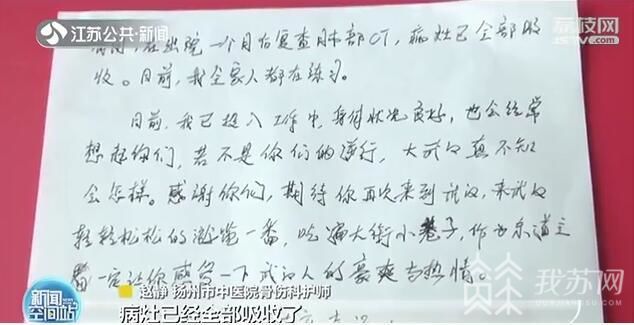 江苏公共·新闻
荔枝网
JSTV.COM
在出院一个月后复查肺部CT，病灶已全部吸
收。目前，我全家人都在练习。
目前，我已投入工作中，身体状况良好，也会经常
想起你们，若不是你们的逆行，大武汉真不知
会怎样。感谢你们，期待你再次来到武汉，来武汉
轻轻松松的游览一番，吃遍大街小巷子，作为东道主
一定让你感受一下武汉人的豪爽与热情。
新闻空间站
赵静 扬州市中医院骨伤科护师
我苏网
病灶已经全部吸收了